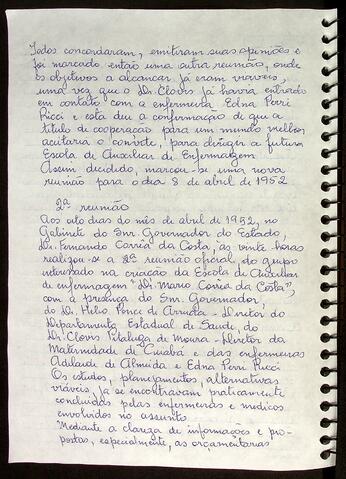 Todos concordaram, emitiram suas opiniões e
foi marcado então uma outra reunião, onde
os objetivos a alcançar já eram viáveis,
uma vez que o Dr Clovis já havia entrado
em contato com a enfermeira Edna Perri
Ricci e esta deu a confirmação de que a
titulo de cooperação para um mundo melhor
aceitaria o convite, para dirigir a futura
Escola de Auxiliar de Enfermagem.
Assim decidido, marcou-se uma nova
reunião para o dia 8 de abril de 1952
2ª reunião
Aos oito dias do mês de abril de 1952, no
Gabinete do Snr. Governador do Estado,
Dr. Fernando Corrêa da Costa, às vinte horas
realizou-se a 2ª reunião oficial, do grupo
interessado na criação da Escola de Auxiliar
de enfermagem "Dr. Mario Corrêa da Costa",
com a presença do Snr. Governador,
do Dr. Helio Ponce de Arruda - Diretor do
Departamento Estadual de Saude, do
Dr. Clovis Pitaluga de Moura - Diretor da
Maternidade de Cuiabá e das enfermeiras
Adilaide de Almeida e Edna Perri Ricci
Os estudos, planejamentos, alternativas
viáveis, já se encontravam praticamente
concluidas pelas enfermeiras e medicos
envolvidos no assunto.
Mediante a clareza de informações e pro-
postas, especialmente, as orçamentárias